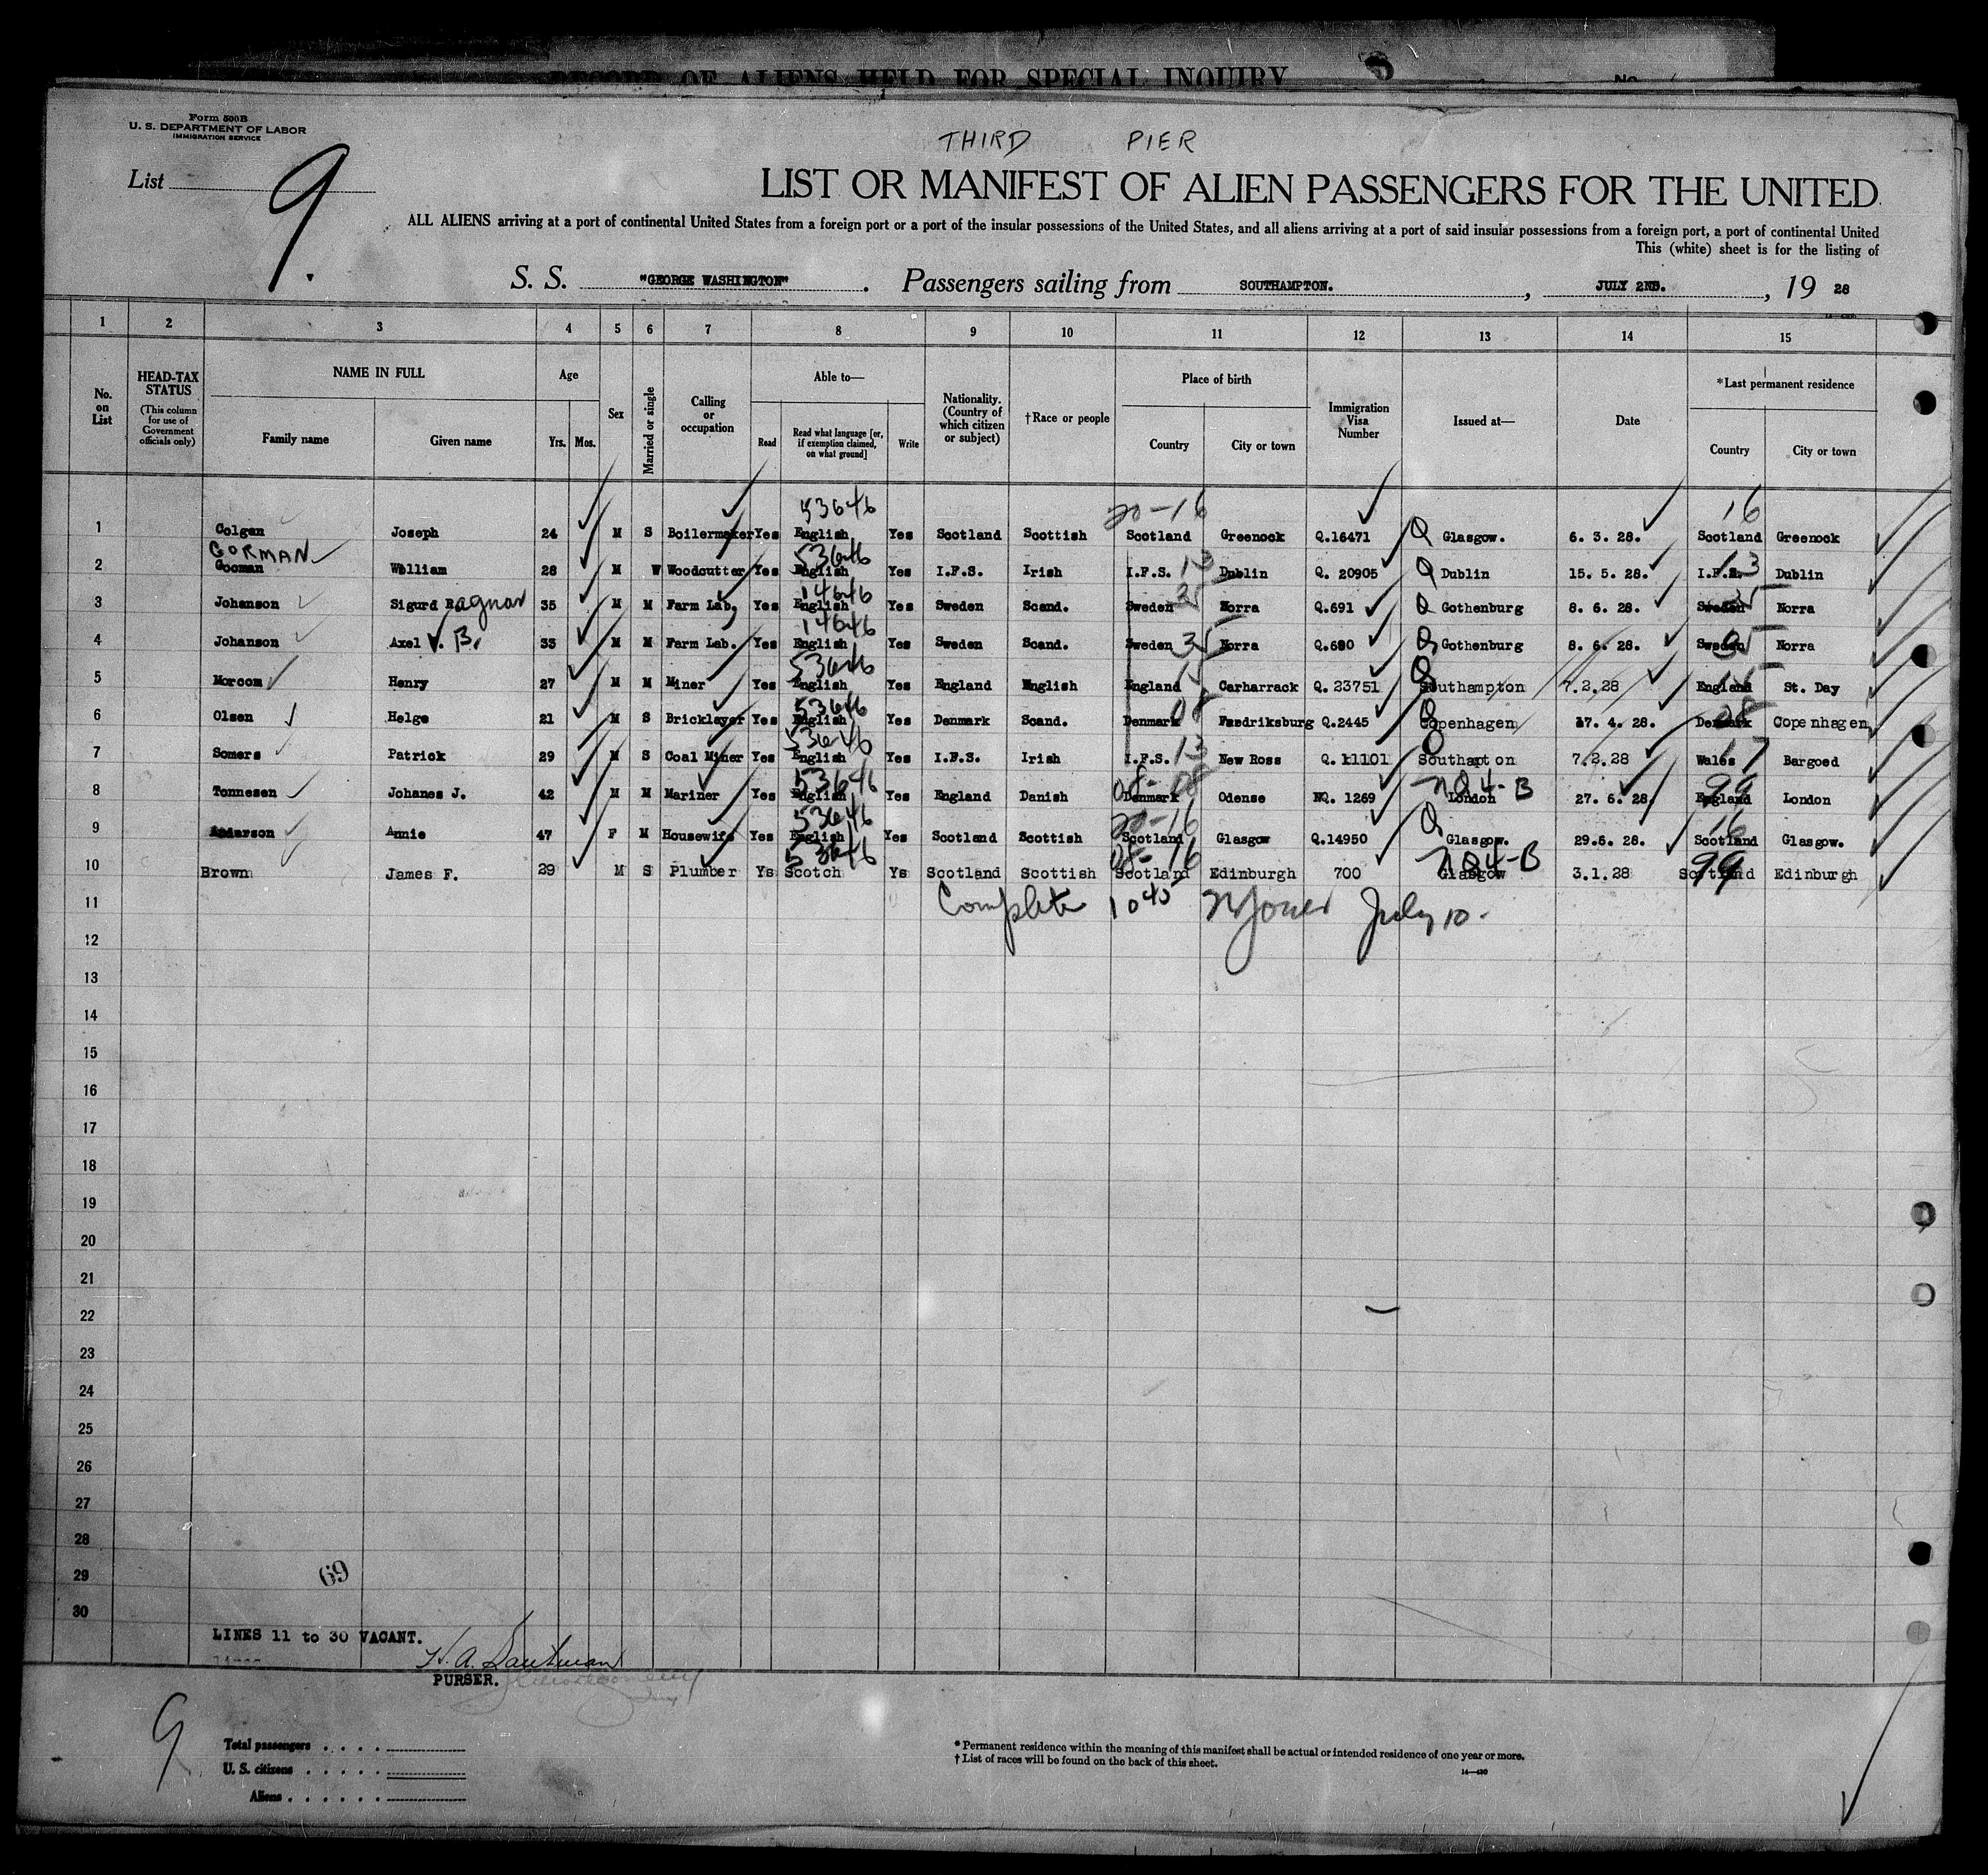 RECORD OF ALIENS HELD FOR SPECIAL INQUIRY No.
Form 500B
U. S. DEPARTMENT OF LABOR
IMMIGRATION SERVICE
THIRD PIER
List 9.
LIST OR MANIFEST OF ALIEN PASSENGERS FOR THE UNITED
ALL ALIENS arriving at a port of continental United States from a foreign port or a port of the insular possessions of the United States, and all aliens arriving at a port of said insular possessions from a foreign port, a port of continental United
This (white) sheet is for the listing of
S. S. "GEORGE WASHINGTON". Passengers sailing from SOUTHAMPTON. , JULY 2ND. , 19 28
1 2 3 4 5 6 7 8 9 10 11 12 13 14 15
No. on List
HEAD-TAX STATUS (This column for use of Government officials only)
NAME IN FULL
Family name
Given name
Age
Yrs. Mos.
Sex
Married or single
Calling or occupation
Able to—
Read
Read what language [or, if exemption claimed, on what ground]
Write
Nationality. (Country of which citizen or subject)
†Race or people
Place of birth
Country
City or town
Immigration Visa Number
Issued at—
Date
*Last permanent residence
Country
City or town
53646 20-16 16
1 Colgan Joseph 24 M S Boilermaker Yes English Yes Scotland Scottish Scotland Greenock Q.16471 Q Glasgow. 6. 3. 28. Scotland Greenock
GORMAN 53646
2 Gooman William 28 M W Woodcutter Yes English Yes I.F.S. Irish I.F.S. 13 Dublin Q. 20905 Q Dublin 15. 5. 28. I.F.S. 13 Dublin
14646
3 Johanson Sigurd Ragnar 35 M M Farm Lab, Yes English Yes Sweden Scand. Sweden 35 Norra Q.691 Q Gothenburg 8. 6. 28. Sweden 35 Norra
14646
4 Johanson Axel V. B. 33 M M Farm Lab. Yes English Yes Sweden Scand. Sweden 35 Norra Q.680 Q Gothenburg 8. 6. 28. Sweden 35 Norra
53646
5 Morcom Henry 27 M M Miner Yes English Yes England English England 15 Carharrack Q. 23751 Q Southampton 7.2.28 England 15 St. Day
53646
6 Olsen Helge 21 M S Bricklayer Yes English Yes Denmark Scand. Denmark 08 Fredriksburg Q.2445 Q Copenhagen 17. 4. 28. Denmark 08 Copenhagen
53646
7 Somers Patrick 29 M S Coal Miner Yes English Yes I.F.S. Irish I.F.S. 13 New Ross Q. 11101 Q Southapton 7.2.28 Wales 17 Bargoed
53646 08-08 NQ4-B 99
8 Tonnesen Johanes J. 42 M M Mariner Yes English Yes England Danish Denmark Odense NQ. 1269 London 27. 6. 28. England London
53646 20-16 16
9 Anderson Annie 47 F M Housewife Yes English Yes Scotland Scottish Scotland Glasgow Q.14950 Q Glasgow. 29.6. 28. Scotland Glasgow.
53646 08-16 NQ4-B 99
10 Brown James F. 29 M S Plumber Ys Scotch Ys Scotland Scottish Scotland Edinburgh 700 Glasgow 3.1.28 Scotland Edinburgh
11 Complete 1045 July 10.
12
13
14
15
16
17
18
19
20
21
22
23
24
25
26
27
28
29 69
30
LINES 11 to 30 VACANT.
PURSER.
9
Total passengers . . . .
U. S. citizens . . . . .
Aliens . . . . . .
* Permanent residence within the meaning of this manifest shall be actual or intended residence of one year or more.
† List of races will be found on the back of this sheet.
14—430